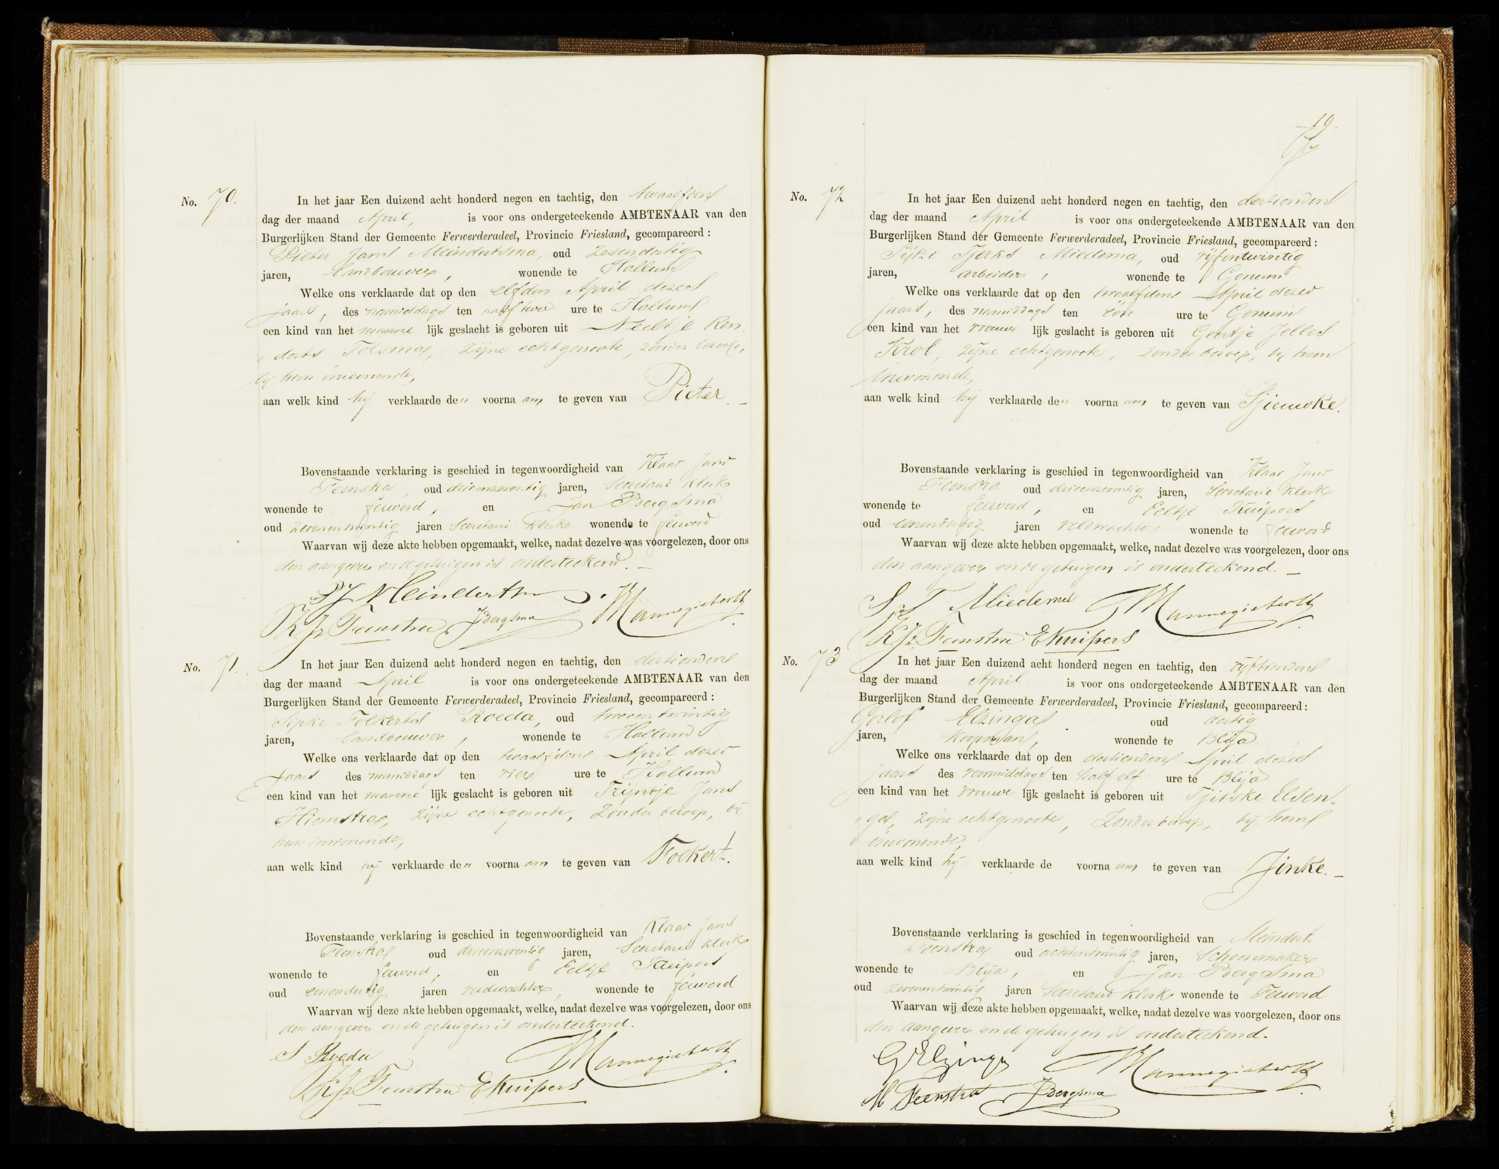 No. 70.
In het jaar Een duizend acht honderd negen en tachtig, den twaalfden
dag der maand April, is voor ons ondergeteekende AMBTENAAR van den
Burgerlijken Stand der Gemeente Ferwerderadeel, Provincie Friesland, gecompareerd :
Pieter Jans Meindertsma, oud zesendertig
jaren, landbouwer, wonende te Hallum
Welke ons verklaarde dat op den elfden April dezes
jaars, des namiddags ten half twee ure te Hallum
een kind van het mannelijk geslacht is geboren uit
zijne echtgenoote, zonder beroep,
bij hem inwonende,
aan welk kind hij verklaarde den voornaam te geven van Pieter. —
Bovenstaande verklaring is geschied in tegenwoordigheid van Klaas Jans
Feenstra, oud jaren, Secretarie klerk
wonende te Ferwerd, en Jan Bergsma
oud zevenentwintig jaren Secretarie klerk wonende te Ferwerd
Waarvan wij deze akte hebben opgemaakt, welke, nadat dezelve was voorgelezen, door ons
den aangever en de getuigen is onderteekend. —
PJ Meindertsma
KJs Feenstra JBergsma Mannegieter
No. 71.
In het jaar Een duizend acht honderd negen en tachtig, den dertienden
dag der maand April is voor ons ondergeteekende AMBTENAAR van den
Burgerlijken Stand der Gemeente Ferwerderadeel, Provincie Friesland, gecompareerd :
Sipke Folkerts Roeda, oud tweeentwintig
jaren, landbouwer, wonende te Hallum
Welke ons verklaarde dat op den twaalfden April dezes
jaars des namiddags ten vier ure te Hallum
een kind van het mannelijk geslacht is geboren uit Trijntje Jans
Hiemstra, zijne echtgenoote, zonder beroep, bij
hem inwonende,
aan welk kind hij verklaarde den voornaam te geven van Folkert.
Bovenstaande verklaring is geschied in tegenwoordigheid van Klaas Jans
Feenstra oud jaren, Secretarie klerk
wonende te Ferwerd, en Eeltje Kuipers
oud eenendertig jaren veldwachter, wonende te Ferwerd
Waarvan wij deze akte hebben opgemaakt, welke, nadat dezelve was voorgelezen, door ons
den aangever en de getuigen is onderteekend.
S Roeda Mannegieter
KJs Feenstra EKuipers
19
No. 72
In het jaar Een duizend acht honderd negen en tachtig, den dertienden
dag der maand April is voor ons ondergeteekende AMBTENAAR van den
Burgerlijken Stand der Gemeente Ferwerderadeel, Provincie Friesland, gecompareerd :
Sijke Tjerks Miedema, oud vijfentwintig
jaren, arbeider, wonende te Genum
Welke ons verklaarde dat op den twaalfden April dezes
jaars, des namiddags ten een ure te Genum
een kind van het vrouwelijk geslacht is geboren uit Grietje Jelles
Krol, zijne echtgenoote, zonder beroep, bij hem
inwonende,
aan welk kind hij verklaarde den voornaam te geven van Sjieuwke.
Bovenstaande verklaring is geschied in tegenwoordigheid van Klaas Jans
Feenstra oud jaren, Secretarie klerk
wonende te Ferwerd, en Eeltje Kuipers
oud eenendertig jaren veldwachter wonende te Ferwerd
Waarvan wij deze akte hebben opgemaakt, welke, nadat dezelve was voorgelezen, door ons
den aangever en de getuigen is onderteekend. —
S. T. Miedema Mannegieter
KJs Feenstra EKuipers
No. 73
In het jaar Een duizend acht honderd negen en tachtig, den vijftienden
dag der maand April is voor ons ondergeteekende AMBTENAAR van den
Burgerlijken Stand der Gemeente Ferwerderadeel, Provincie Friesland, gecompareerd :
Gerlof Elzinga oud dertig
jaren, koopman, wonende te Blija
Welke ons verklaarde dat op den dertienden April dezes
jaars des voormiddags ten half elf ure te Blija
een kind van het vrouwelijk geslacht is geboren uit Tjitske Elsen-
ga, zijne echtgenoote, zonder beroep, bij hem
inwonende,
aan welk kind hij verklaarde de voornaam te geven van Jinke. —
Bovenstaande verklaring is geschied in tegenwoordigheid van Meindert
Feenstra oud achtentwintig jaren, schoenmaker
wonende te Blija, en Jan Bergsma
oud zevenentwintig jaren Secretarie klerk wonende te Ferwerd
Waarvan wij deze akte hebben opgemaakt, welke, nadat dezelve was voorgelezen, door ons
den aangever en de getuigen is onderteekend.
G Elzinga Mannegieter
M Feenstra JBergsma